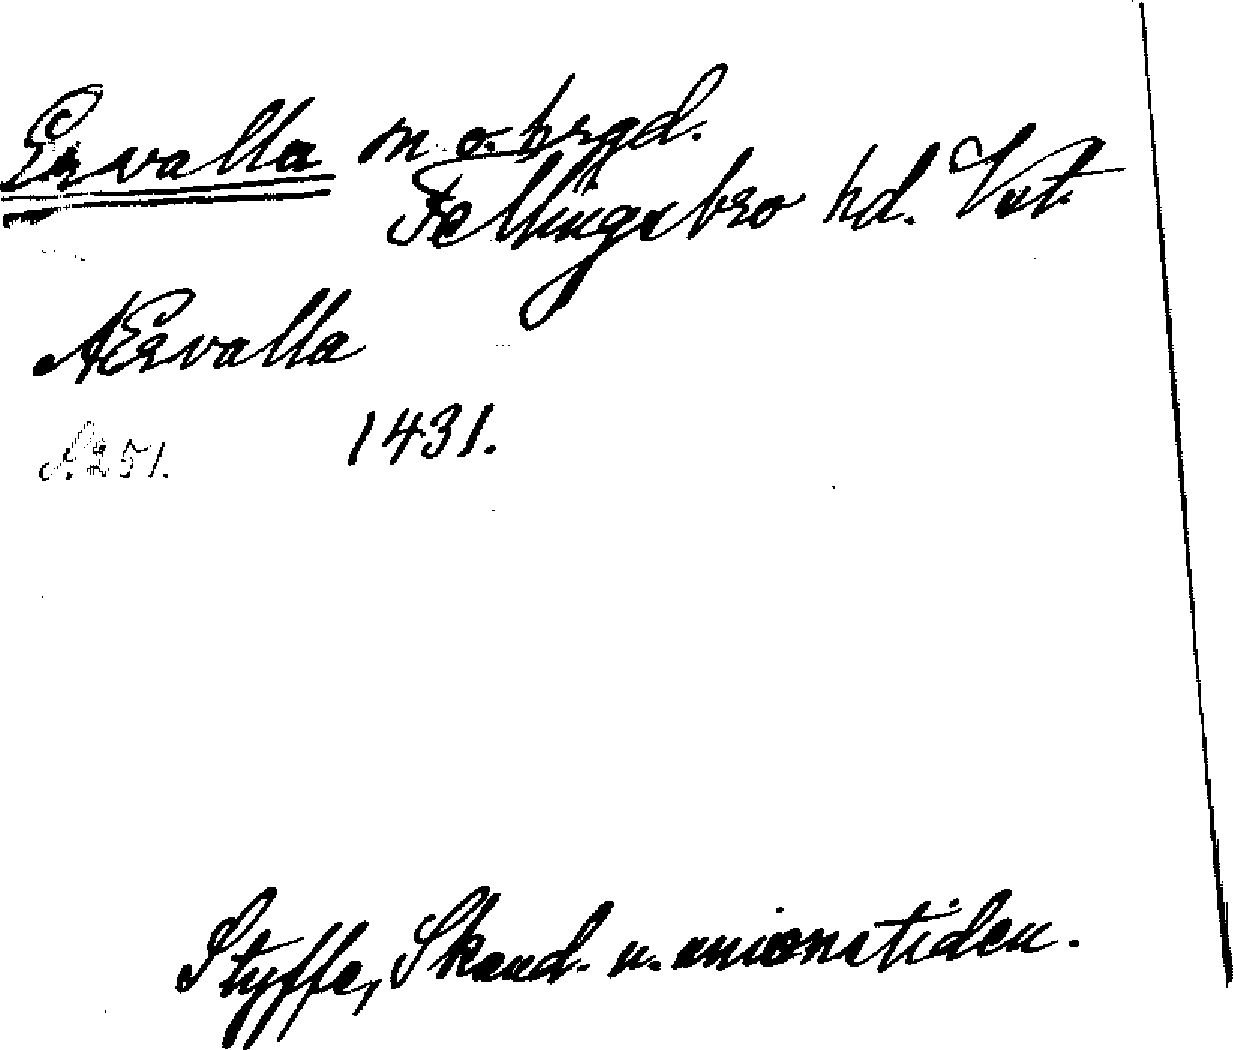 Ervalla sn o. hrgd.
Fellingsbro hd. Vst.
AErvalla
1431.
S. 251.
Styffe, Skand. u. unionstiden.